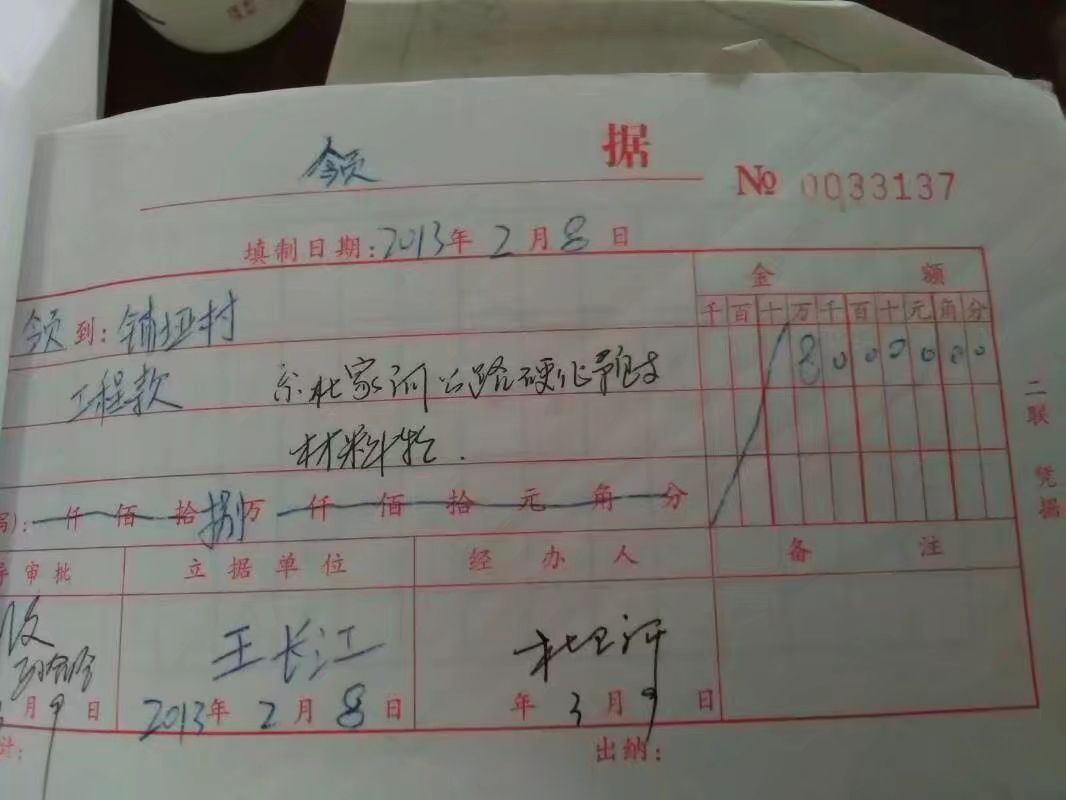 领 据
№ 0033137
填制日期:2013年 2 月 8 日
金 额
千百十万千百十元角分
领到:铺垭村
8 0 0 0 0 0 0
工程款 系杜家河公路硬化
材料
写):仟 佰 拾 捌万 仟 佰 拾 元 角 分
二联 凭据
导审批 立据单位 经办人 备 注
王长江 杜河
月 9 日 2013年 2 月 8 日 年 3 月 9 日
计: 出纳: